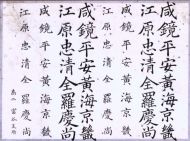 咸鏡平安黃海京畿
江原忠清全羅慶尚
咸鏡平安黃海京畿
江原忠清全羅慶尚
咸鏡平安黃海京畿
江原忠清全羅慶尚